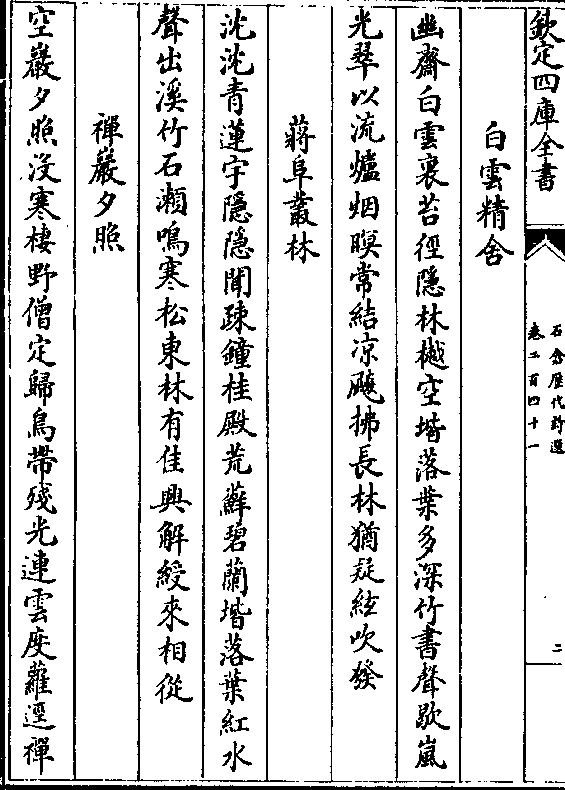 欽定四庫全書
石倉歷代詩選
卷二百四十一
二
白雲精舍
幽齋白雲裏苔徑隱林樾空堦落葉多深竹書聲歇嵐
光翠以流爐烟暝常結凉飈拂長林猶疑絃吹發
蔣阜叢林
沈沈青蓮宇隱隱聞疎鐘桂殿荒蘚碧蘭堦落葉紅水
聲出溪竹石瀬鳴寒松東林有佳興解綬來相從
禪巖夕照
空巖夕照沒寒棲野僧定歸鳥帶殘光連雲度蘿逕禪